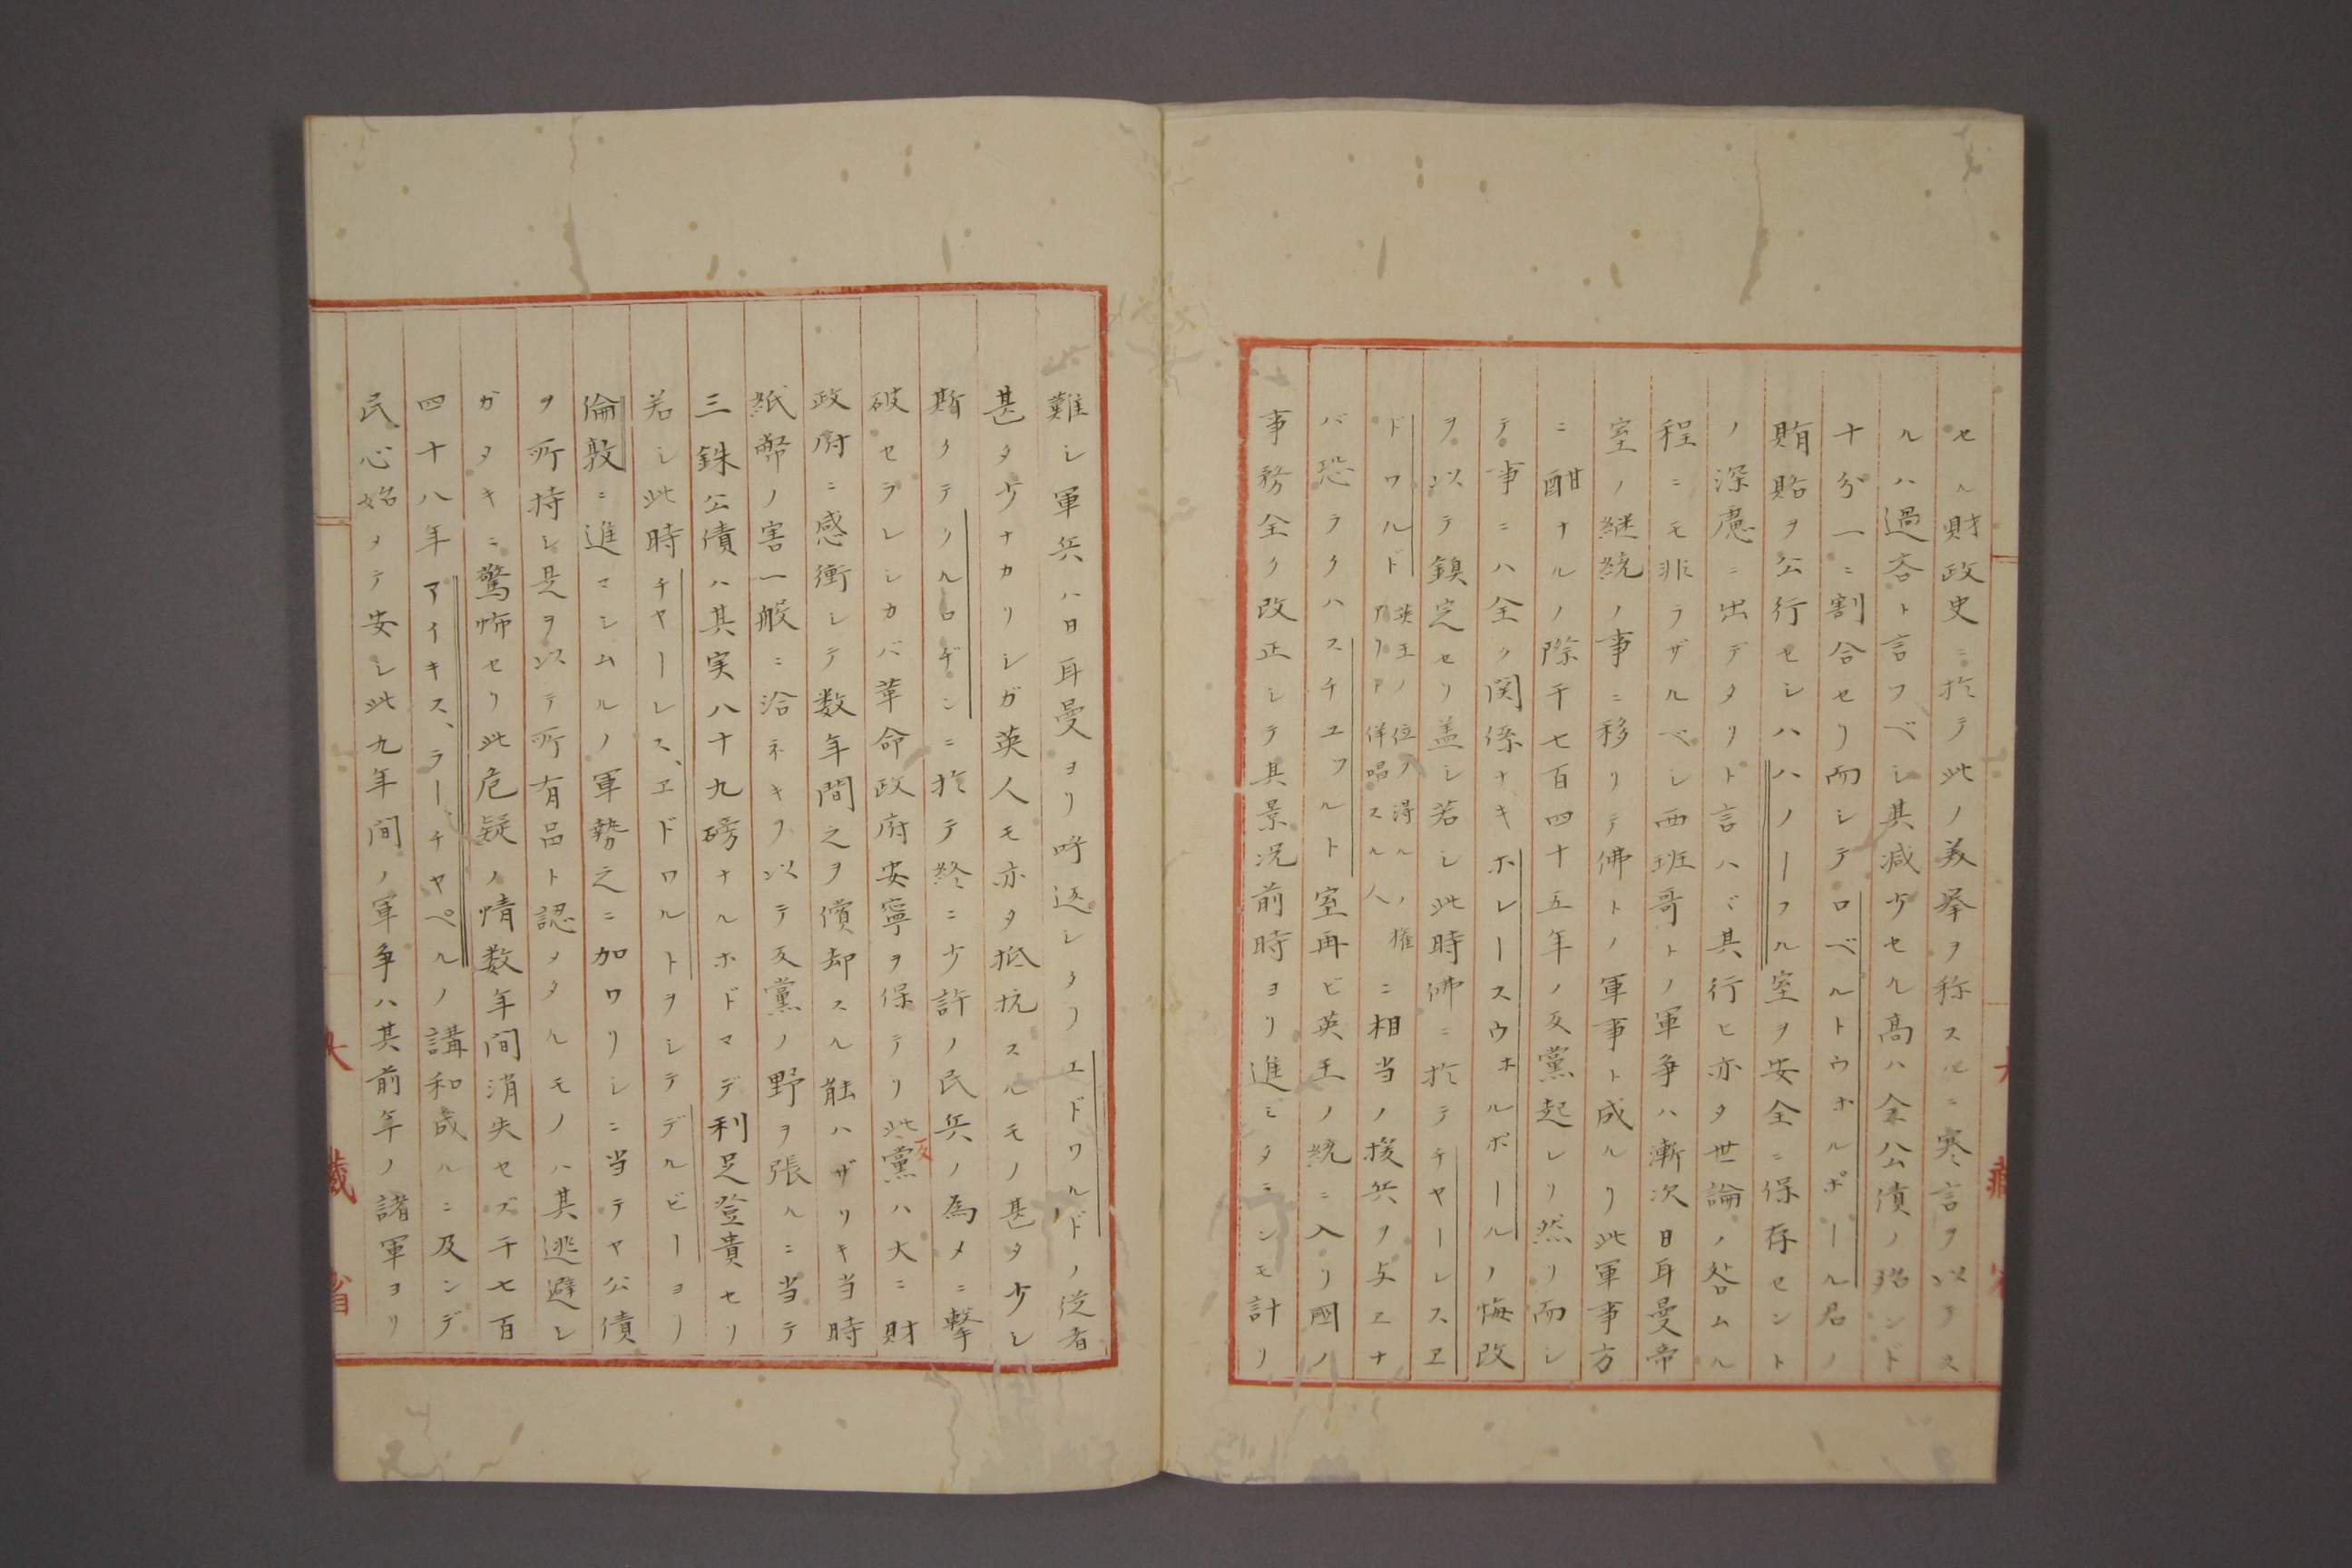 セル財政史ニ於テ此ノ美挙ヲ称スルニ寒言ヲ以テス
ルハ過吝ト言フベシ其減少セル高ハ全公債ノ殆ンド
十分一ニ割合セリ而シテロベルトウホルポール君ノ
賄賂ヲ公行セシハハノーフル室ヲ安全ニ保存セント
ノ深慮ニ出デタリト言ハヾ其行ヒ亦タ世論ノ咎ムル
程ニモ非ラザルベシ西班哥トノ軍争ハ漸次日耳曼帝
室ノ継統ノ事ニ移リテ佛トノ軍事ト成ルリ此軍事方
ニ酣ナルノ際千七百四十五年ノ反黨起レリ然リ而シ
テ事ニハ全ク関係ナキホレースウホルポールノ悔改
ヲ以テ鎮定セリ盖シ若シ此時佛ニ於テチヤーレスヱ
ドワルド英王ノ位ヲ得ルノ権アリト佯唱スル人ニ相当ノ援兵ヲ与エナ
バ恐ラクハスチユワルト室再ビ英王ノ統ニ入リ國ノ
事務全ク改正シテ其景況前時ヨリ進ミタランモ計リ
難シ軍兵ハ日耳曼ヨリ呼返シタリエドワルドノ従者
甚タ少ナカリシガ英人モ亦タ抵抗スルモノ甚タ少シ
斯クテクルロデンニ於テ終ニ少許ノ民兵ノ為メニ撃
破セラレシカバ革命政府安寧ヲ保テリ此反黨ハ大ニ財
政府ニ感衝シテ数年間之ヲ償却スル能ハザリキ当時
紙幣ノ害一般ニ洽ネキヲ以テ反黨ノ野ヲ張ルニ当テ
三銖公債ハ其実八十九磅ナルホドマデ利足登貴セリ
若シ此時チヤーレス、エドワルトヲシテデルビーヨリ
倫敦ニ進マシムルノ軍勢之ニ加ワリシニ当テヤ公債
ヲ所持シ是ヲ以テ所有品ト認メタルモノハ其逃避シ
ガタキニ驚怖セリ此危疑ノ情数年間消失セズ千七百
四十八年アイキス、ラー、チヤペルノ講和成ルニ及ンデ
民心始メテ安シ此九年間ノ軍争ハ其前年ノ諸軍ヨリ
大藏省